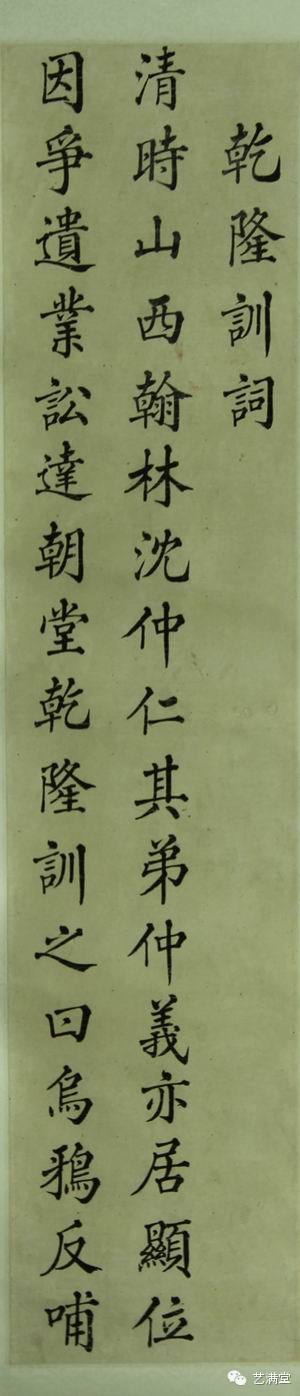 乾隆訓詞
清時山西翰林沈仲仁其弟仲義亦居顯位
因爭遺業訟達朝堂乾隆訓之曰烏鴉反哺
艺满堂